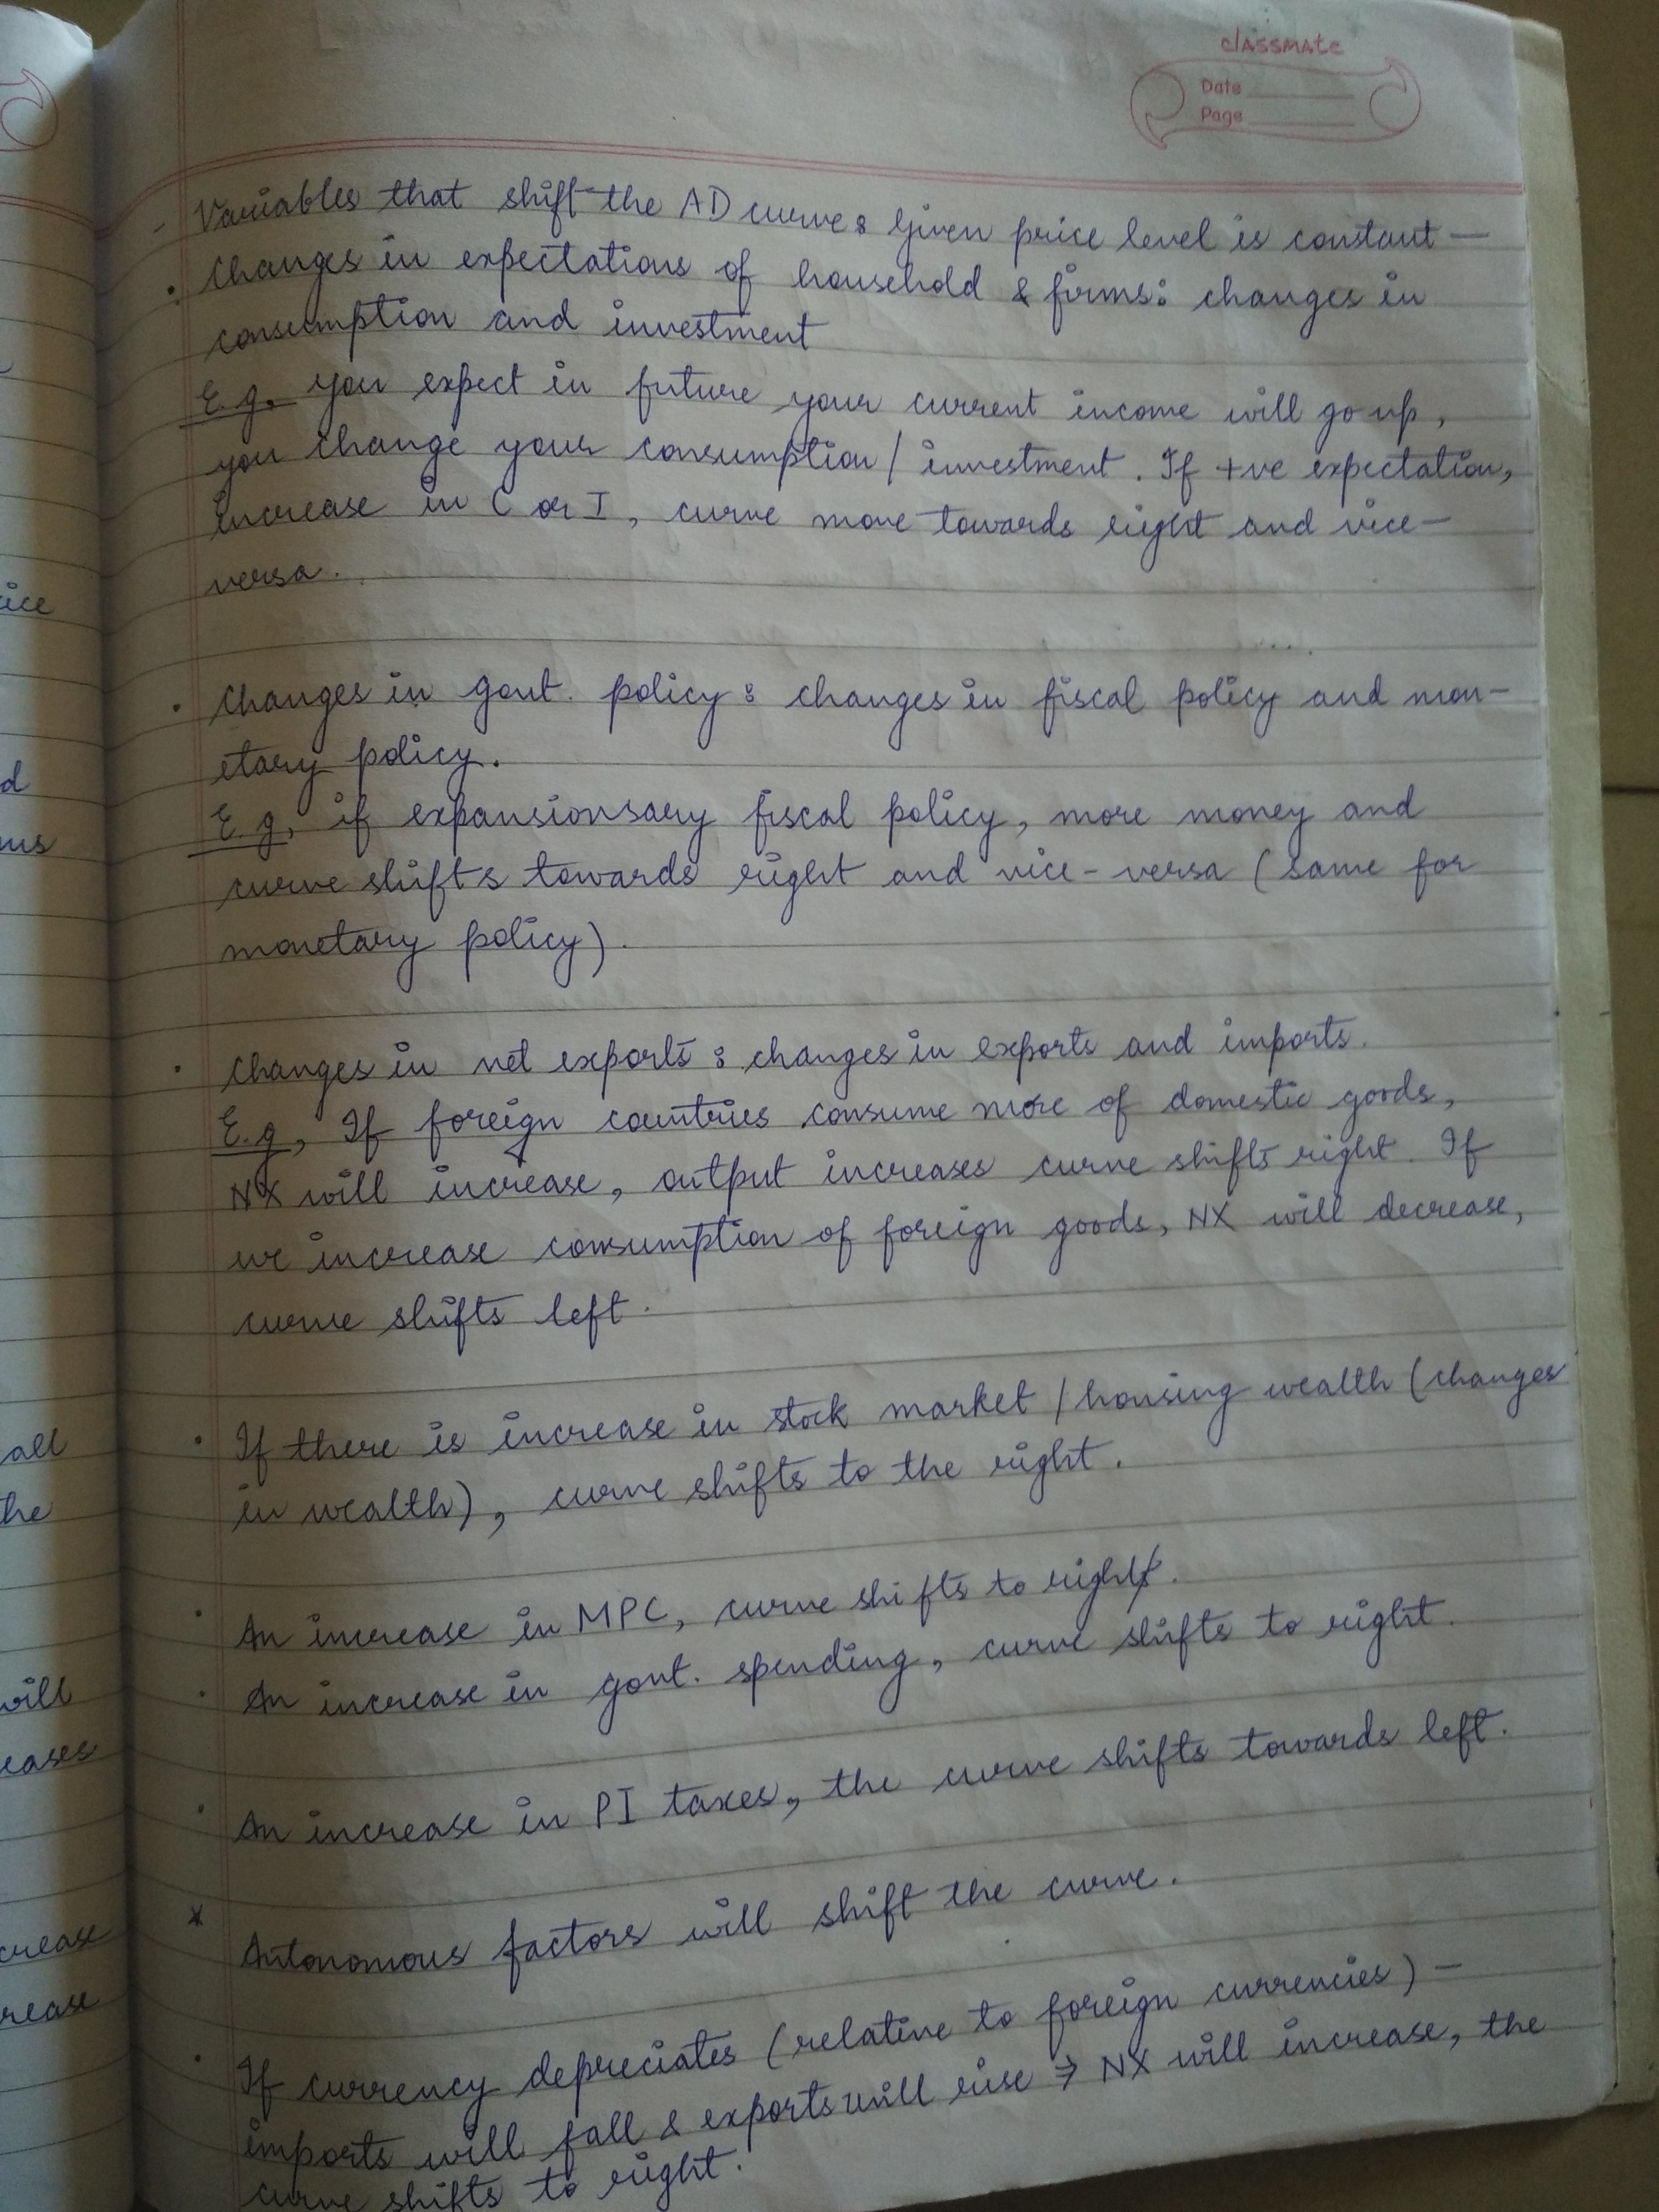 classmate
Date
Page
- Variables that shift the AD curve : Given price level is constant -
• Changes in expectations of household & firms: changes in
consumption and investment
E.g. you expect in future your current income will go up,
you change your consumption / investment. If +ve expectation,
increase in C or I, curve move towards right and vice-
versa.
• Changes in govt. policy : changes in fiscal policy and mon-
etary policy.
E.g, if expansionsary fiscal policy, more money and
curve shifts towards right and vice-versa (same for
monetary policy).
• Changes in net exports : changes in exports and imports.
E.g, If foreign countries consume more of domestic goods,
NX will increase, output increases curve shifts right. If
we increase consumption of foreign goods, NX will decrease,
curve shifts left.
• If there is increase in stock market / housing wealth (changes
in wealth), curve shifts to the right.
• An increase in MPC, curve shifts to right.
• An increase in govt. spending, curve shifts to right.
• An increase in PI taxes, the curve shifts towards left.
* Autonomous factors will shift the curve.
• If currency depreciates (relative to foreign currencies) -
imports will fall & exports will rise → NX will increase, the
curve shifts to right.
ice
d
ms
all
he
will
eases
crease
rease